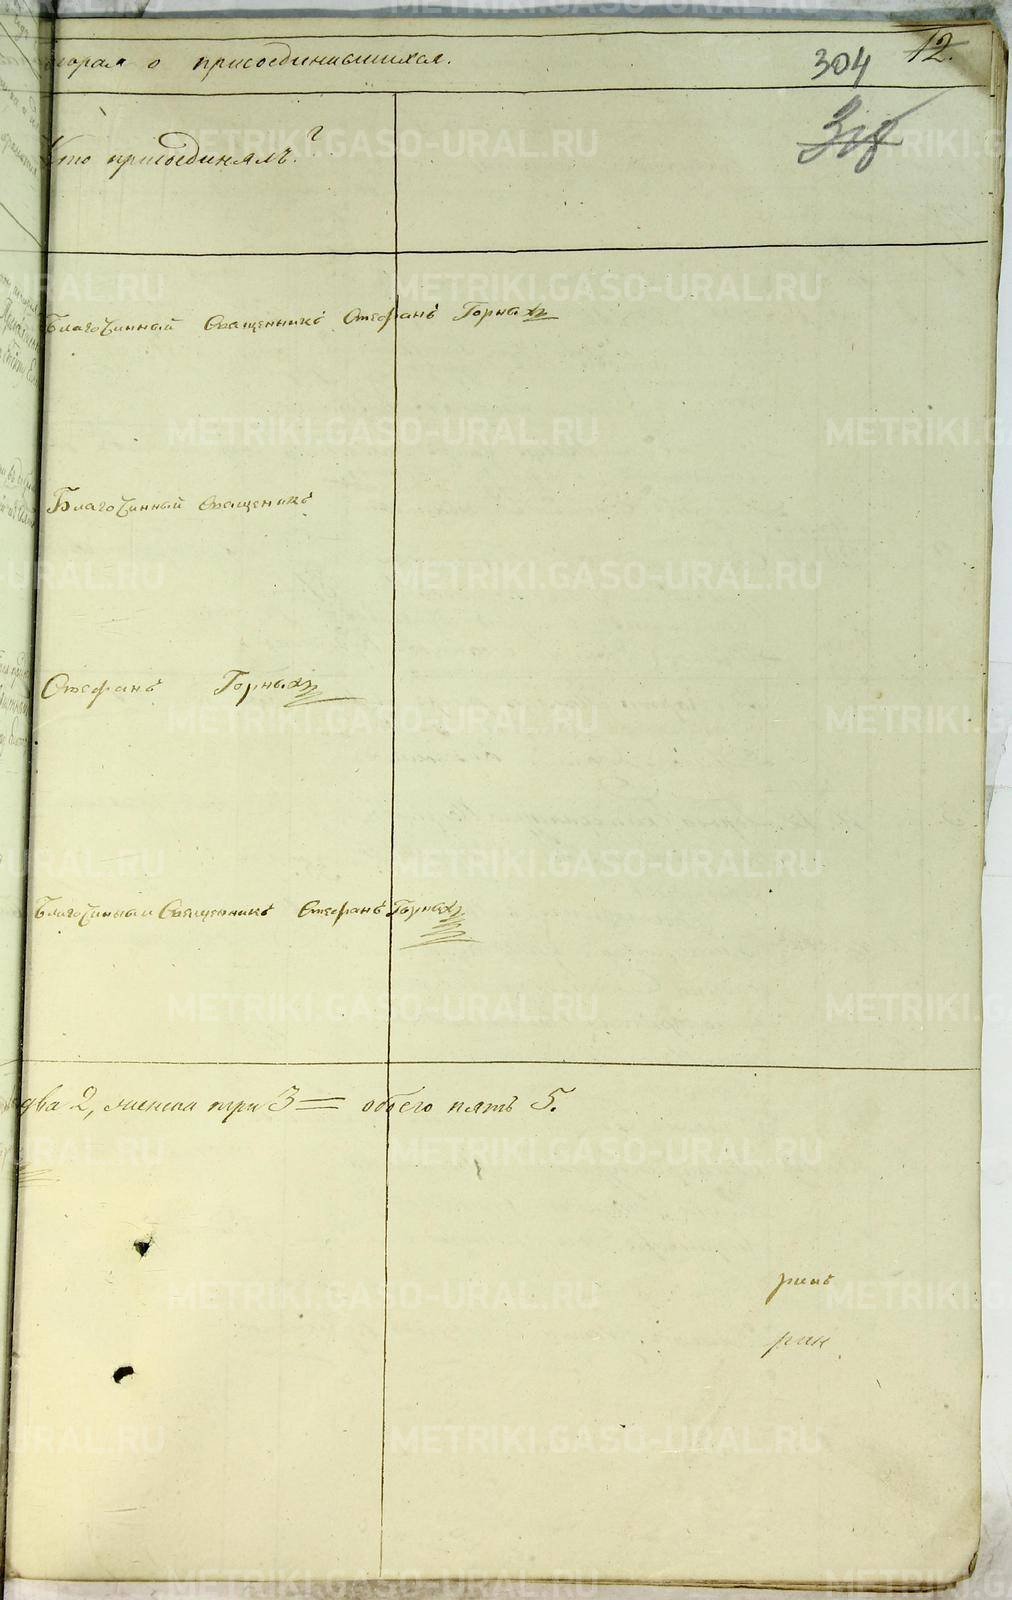 вторая о присоединившихся.
304
12.
Кто присоединялъ?
Благочинный Священникъ Стефанъ Горныхъ
Благочинный Священикъ
Стефанъ Горныхъ
Благочинный Священникъ Стефанъ Горныхъ
два 2, женска три 3 = обоего пять 5.
METRIKI.GASO-URAL.RU